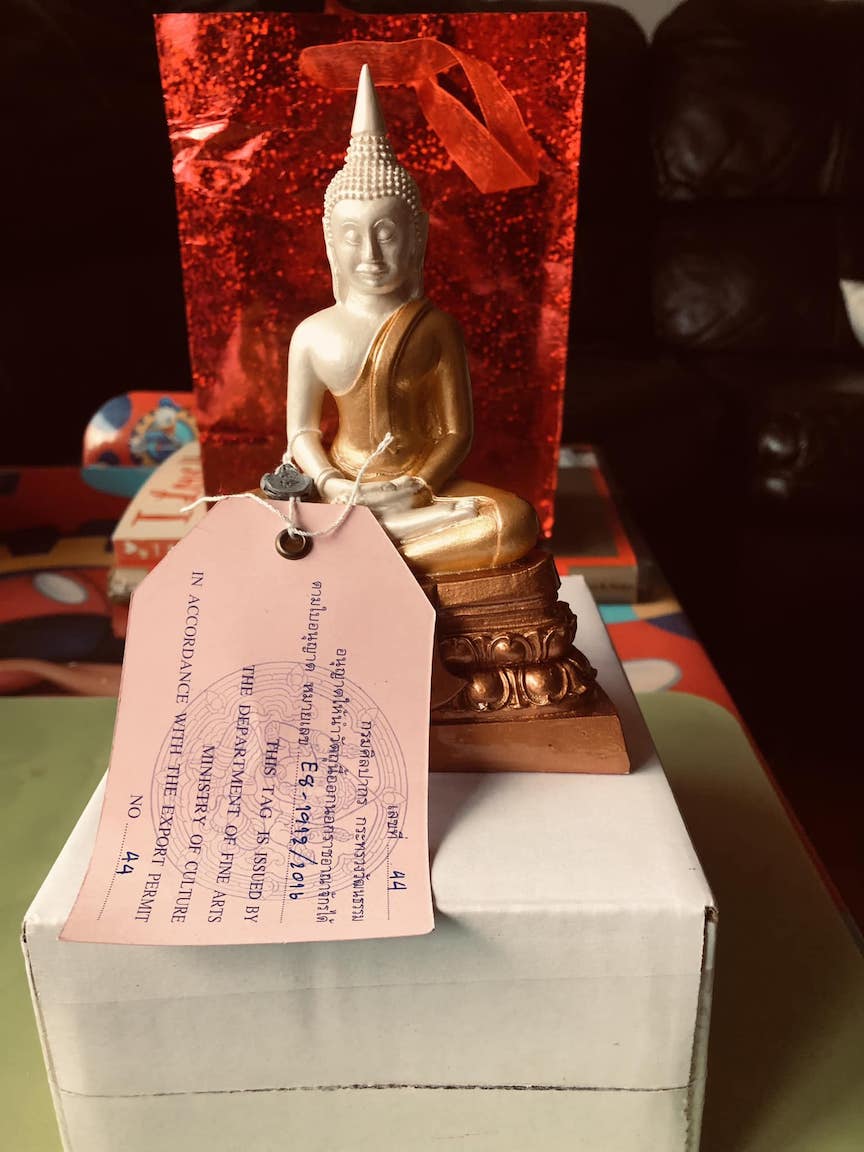 เลขที่ ........ 44
กรมศิลปากร กระทรวงวัฒนธรรม
อนุญาตให้นำวัตถุนี้ออกนอกราชอาณาจักรได้
ตามใบอนุญาต หมายเลข E8-1942/2016
THIS TAG IS ISSUED BY
THE DEPARTMENT OF FINE ARTS
MINISTRY OF CULTURE
IN ACCORDANCE WITH THE EXPORT PERMIT
NO ........ 44